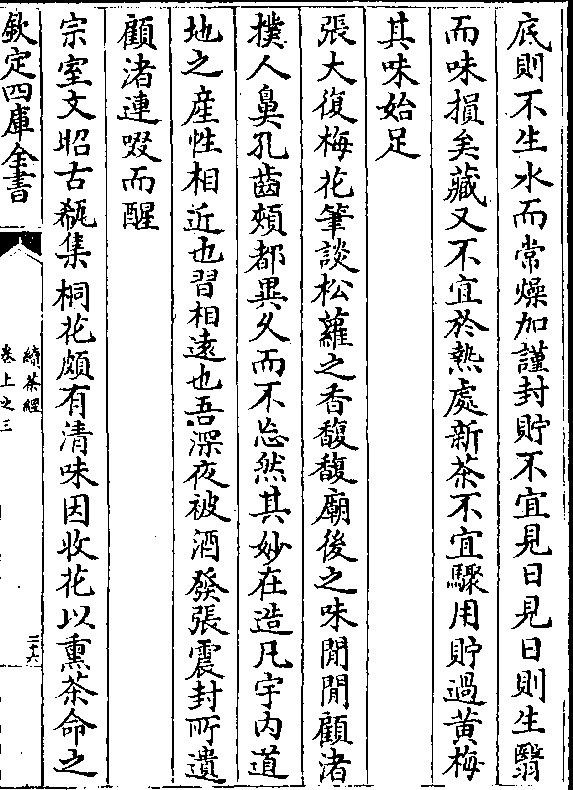 底則不生水而常燥加謹封貯不宜見日見日則生翳
而味損矣藏又不宜於熱處新茶不宜驟用貯過黄梅
其味始足
張大復梅花筆談松蘿之香馥馥廟後之味閒閒顧渚
撲人鼻孔齒頰都異久而不忘然其妙在造凡宇内道
地之産性相近也習相遠也吾深夜被酒發張震封所遺
顧渚連啜而醒
宗室文昭古瓻集桐花頗有清味因收花以熏茶命之
欽定四庫全書
續茶經
卷上之三
三十六